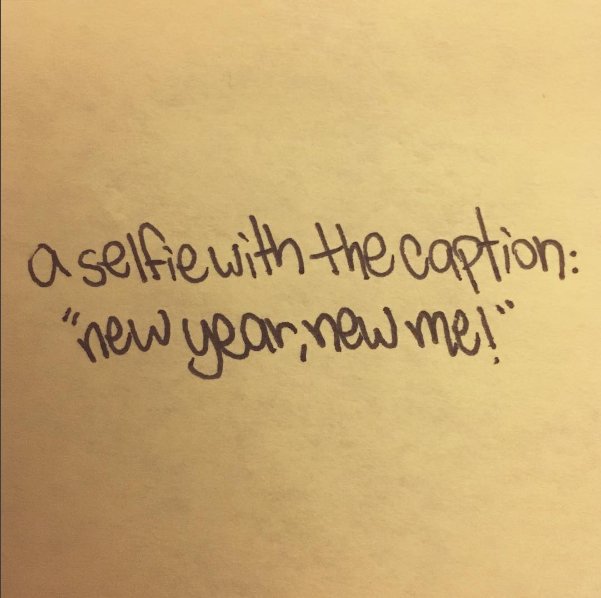 a selfie with the caption:
"new year, new me!"